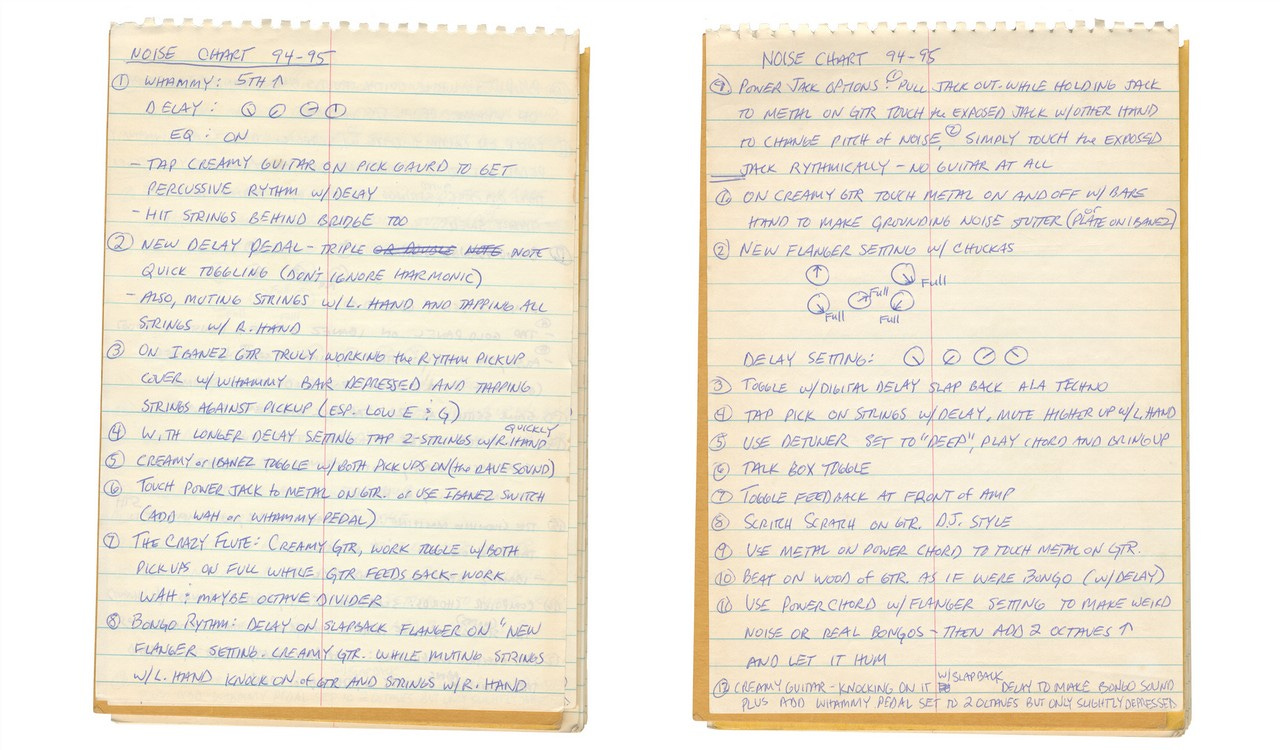 NOISE CHART 94-95
① WHAMMY: 5TH ↑
DELAY:
EQ: ON
- TAP CREAMY GUITAR ON PICK GAURD TO GET
PERCUSSIVE RYTHM W/ DELAY
- HIT STRINGS BEHIND BRIDGE TOO
② NEW DELAY PEDAL - TRIPLE OR DOUBLE NOTE NOTE
QUICK TOGGLING (DON'T IGNORE HARMONIC)
- ALSO, MUTING STRINGS W/ L. HAND AND TAPPING ALL
STRINGS W/ R. HAND
③ ON IBANEZ GTR TRULY WORKING the RYTHM PICKUP
COVER W/ WHAMMY BAR DEPRESSED AND TAPPING
STRINGS AGAINST PICKUP (ESP. LOW E & G)
QUICKLY
④ WITH LONGER DELAY SETTING TAP 2-STRINGS W/R. HAND
⑤ CREAMY or IBANEZ TOGGLE W/ BOTH PICKUPS ON (the RAVE SOUND)
⑥ TOUCH POWER JACK to METAL ON GTR. or USE IBANEZ SWITCH
(ADD WAH or WHAMMY PEDAL)
⑦ THE CRAZY FLUTE: CREAMY GTR, WORK TOGGLE W/ BOTH
PICKUPS ON FULL WHILE GTR FEEDS BACK - WORK
WAH & MAYBE OCTAVE DIVIDER
⑧ BONGO RYTHM: DELAY ON SLAPBACK FLANGER ON "NEW
FLANGER SETTING. CREAMY GTR. WHILE MUTING STRINGS
W/ L. HAND KNOCK ON of GTR AND STRINGS W/ R. HAND
NOISE CHART 94-95
⑨ POWER JACK OPTIONS: ① PULL JACK OUT. WHILE HOLDING JACK
TO METAL ON GTR TOUCH the EXPOSED JACK W/ OTHER HAND
TO CHANGE PITCH of NOISE, ② SIMPLY TOUCH the EXPOSED
JACK RYTHMICALLY - NO GUITAR AT ALL
① ON CREAMY GTR TOUCH METAL ON AND OFF W/ BARE
HAND TO MAKE GROUNDING NOISE STUTTER (OR PLATE ON IBANEZ)
② NEW FLANGER SETTING W/ CHUCKAS
Full
Full Full Full
DELAY SETTING:
③ TOGGLE W/ DIGITAL DELAY SLAP BACK ALA TECHNO
④ TAP PICK ON STRINGS W/ DELAY, MUTE HIGHER UP W/ L. HAND
⑤ USE DETUNER SET TO "DEEP", PLAY CHORD AND BRING UP
⑥ TALK BOX TOGGLE
⑦ TOGGLE FEEDBACK AT FRONT of AMP
⑧ SCRITCH SCRATCH ON GTR. D.J. STYLE
⑨ USE METAL ON POWER CHORD TO TOUCH METAL ON GTR.
⑩ BEAT ON WOOD of GTR. AS IF WERE BONGO (W/ DELAY)
⑪ USE POWERCHORD W/ FLANGER SETTING TO MAKE WEIRD
NOISE OR REAL BONGOS - THEN ADD 2 OCTAVES ↑
AND LET IT HUM
W/ SLAPBACK
⑫ CREAMY GUITAR - KNOCKING ON IT DELAY TO MAKE BONGO SOUND
PLUS ADD WHAMMY PEDAL SET TO 2 OCTAVES BUT ONLY SLIGHTLY DEPRESSED